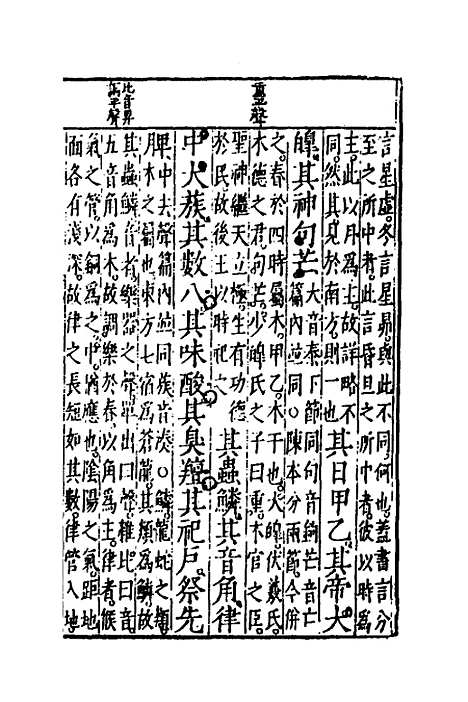 重平聲
比音畀
言星虛冬言星昴與此不同何也蓋書言分
至之所中者此言昏旦之所中者彼以時為
主此以月為主故詳略不
同然其見於南方則一也
其日甲乙其帝大
皥其神句芒
大音泰下節同句音鉤芒音亡
篇內並同○陳本分兩節今併
之春於四時屬木甲乙木干也大皥伏羲氏
木德之君句芒少皥氏之子曰重木官之臣
聖神繼天立極生有功德
於民故後王以時祀之
其蟲鱗其音角律
中大蔟其數八其味酸其臭羶其祀戶祭先
脾
中去聲篇內並同蔟音湊○鱗龍蛇之類
木之屬也東方七宿為蒼龍其類為鱗故
其蟲鱗音者樂器之聲單出曰聲雜比曰音
五音角為木故調樂於春以角為主律者候
氣之管以銅為之中猶應也陰陽之氣距地
面各有淺深故律之長短如其數律管入地